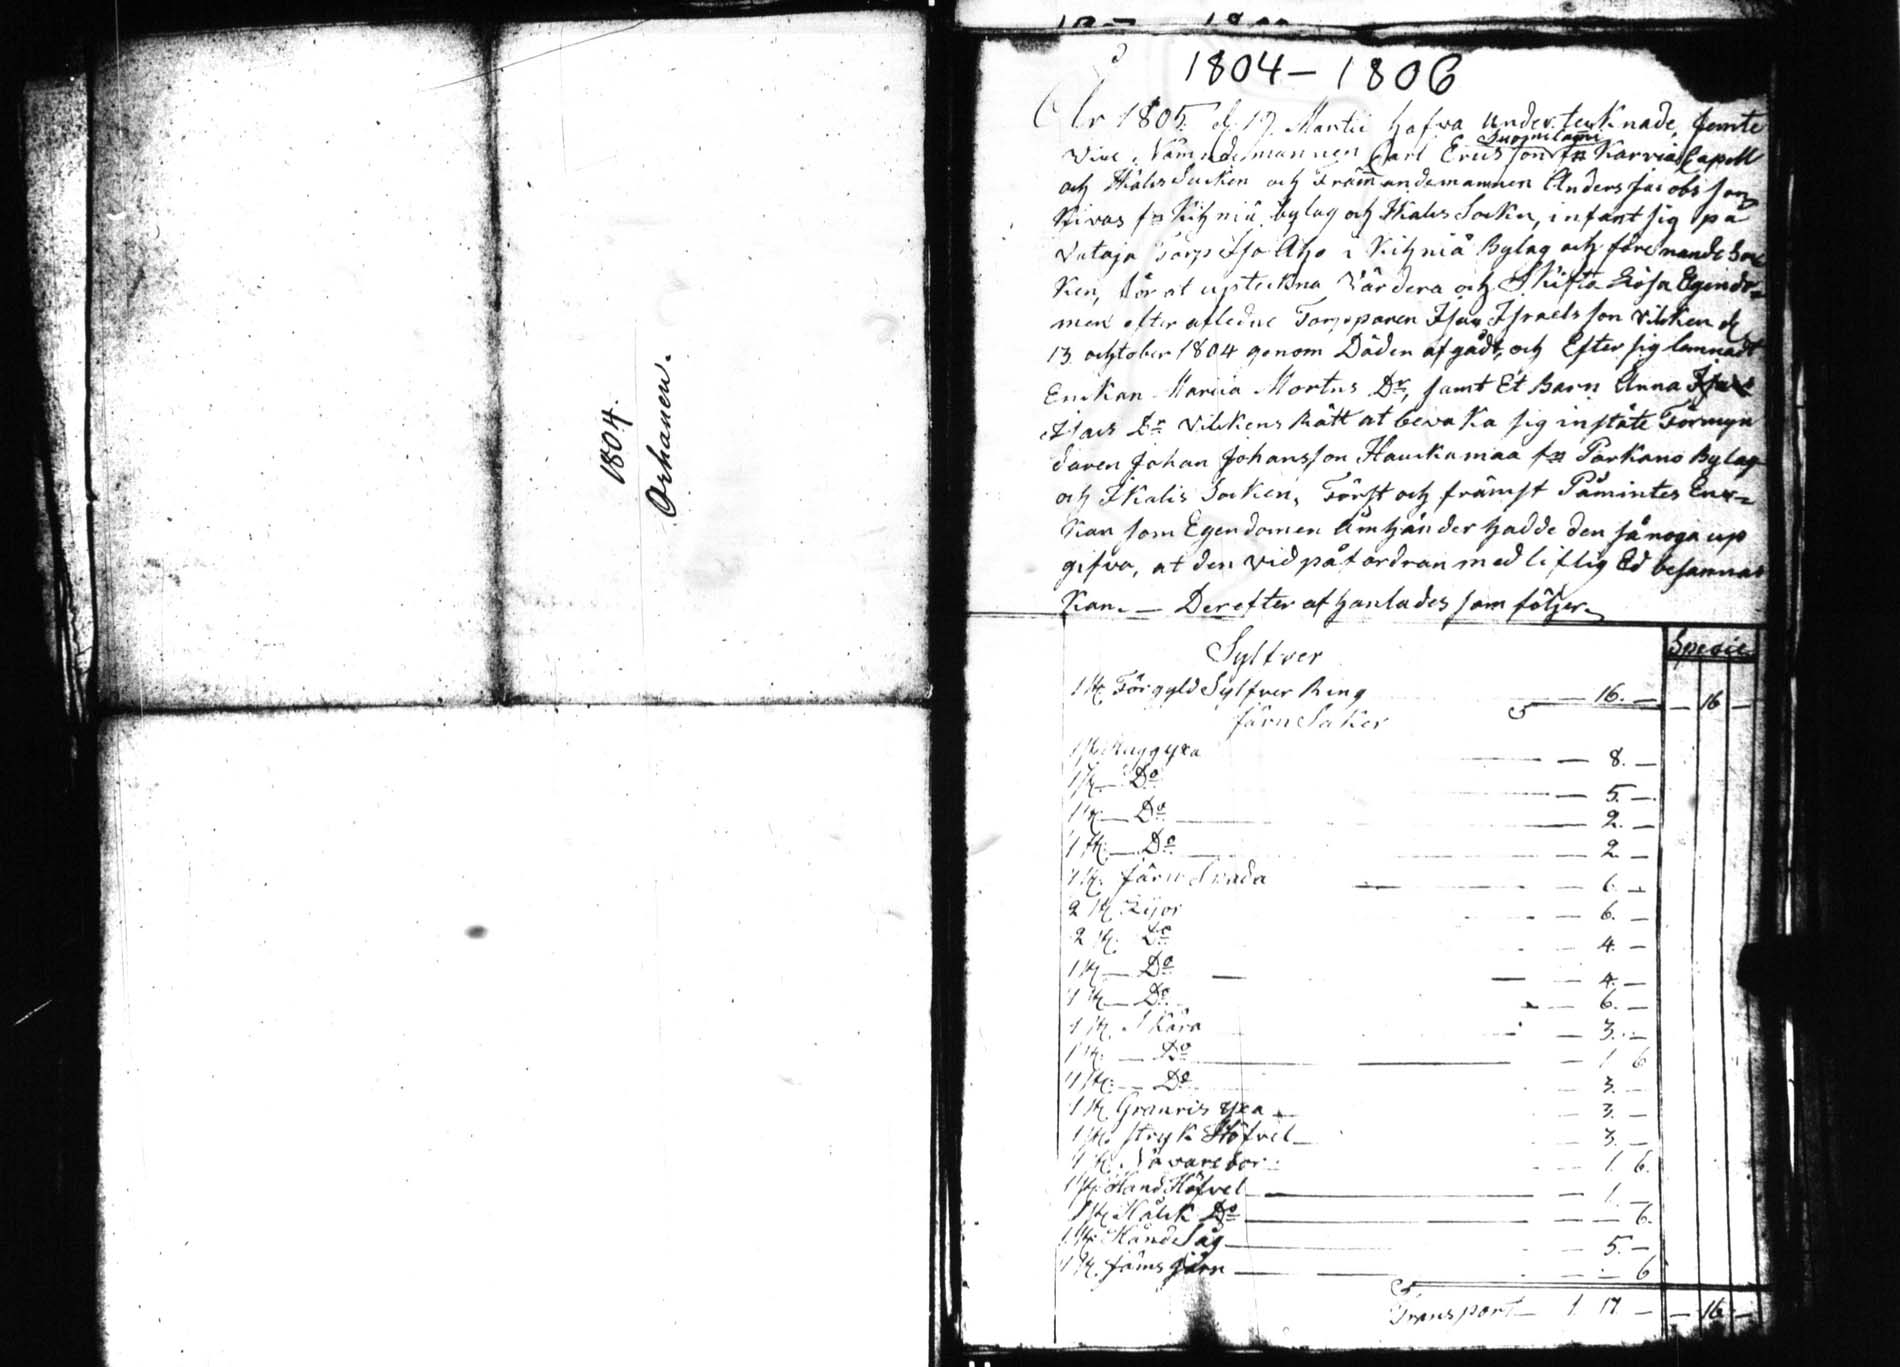 1804.
Orhanen.
1804 – 1806
År 1805 d. 17 Martii hafva undertecknade jemte
Suomilami
vice Nämndemannen Carl Ericsson frn Karvia Capell
och Ikalis Socken och Främandemannen Anders Jacobsson
Kivas frn Kihniä bylag och Ikalis Socken, infant sig på
Vataja Torp Iso Aho i Kihniä Bylag och förenande Soc
ken, för at upteckna värdera och Skifta Lösa Egendo=
men efter afledne Torpparen Isac Israelsson vilcken d.
13 october 1804 genom Döden afgådt, och Efter sig lemnadt
Enckan Maria Mortns Dr, samt Et Barn Anna
Isacs Dr vilckens Rätt at bevaka sig instäte Förmyn
daren Johan Johansson Hauckamaa frn Parkano Bylag
och Ikalis Socken, Först och främst Påmintes Enc=
kan som Egendomen Omhänder hadde den så noga up
gifva, at den vid påfordran med liflig Ed besannas
kan. — Derefter afhanlades som följer
Specie
Sylfver
1 st. Förgyld Sylfver Ring — 16. — — 16 —
Järn Saker
1 st. Huggyxa — 8. —
1 st. — Do — 5. —
1 st. — Do — 2. —
1 st. — Do — 2. —
1 st. Järn — 6. —
2 st. Lijor — 6. —
2 st. Do — 4. —
1 st. — Do — 4. —
1 st. — Do — 6. —
1 st. Skära — 3. —
1 st. — Do — 1 6
1 st. — Do — 3. —
1 st. Granris yxa — 3. —
1 st. stryk Höfvel — 3. —
1 st. Navare bor — 1. 6.
1 st. Hand Höfvel — 1. —
1 st. Hålck Do — — 6.
1 st. Hand Såg — 5. —
1 st. järn — — 6
Transport — 1 17 — — 16 —